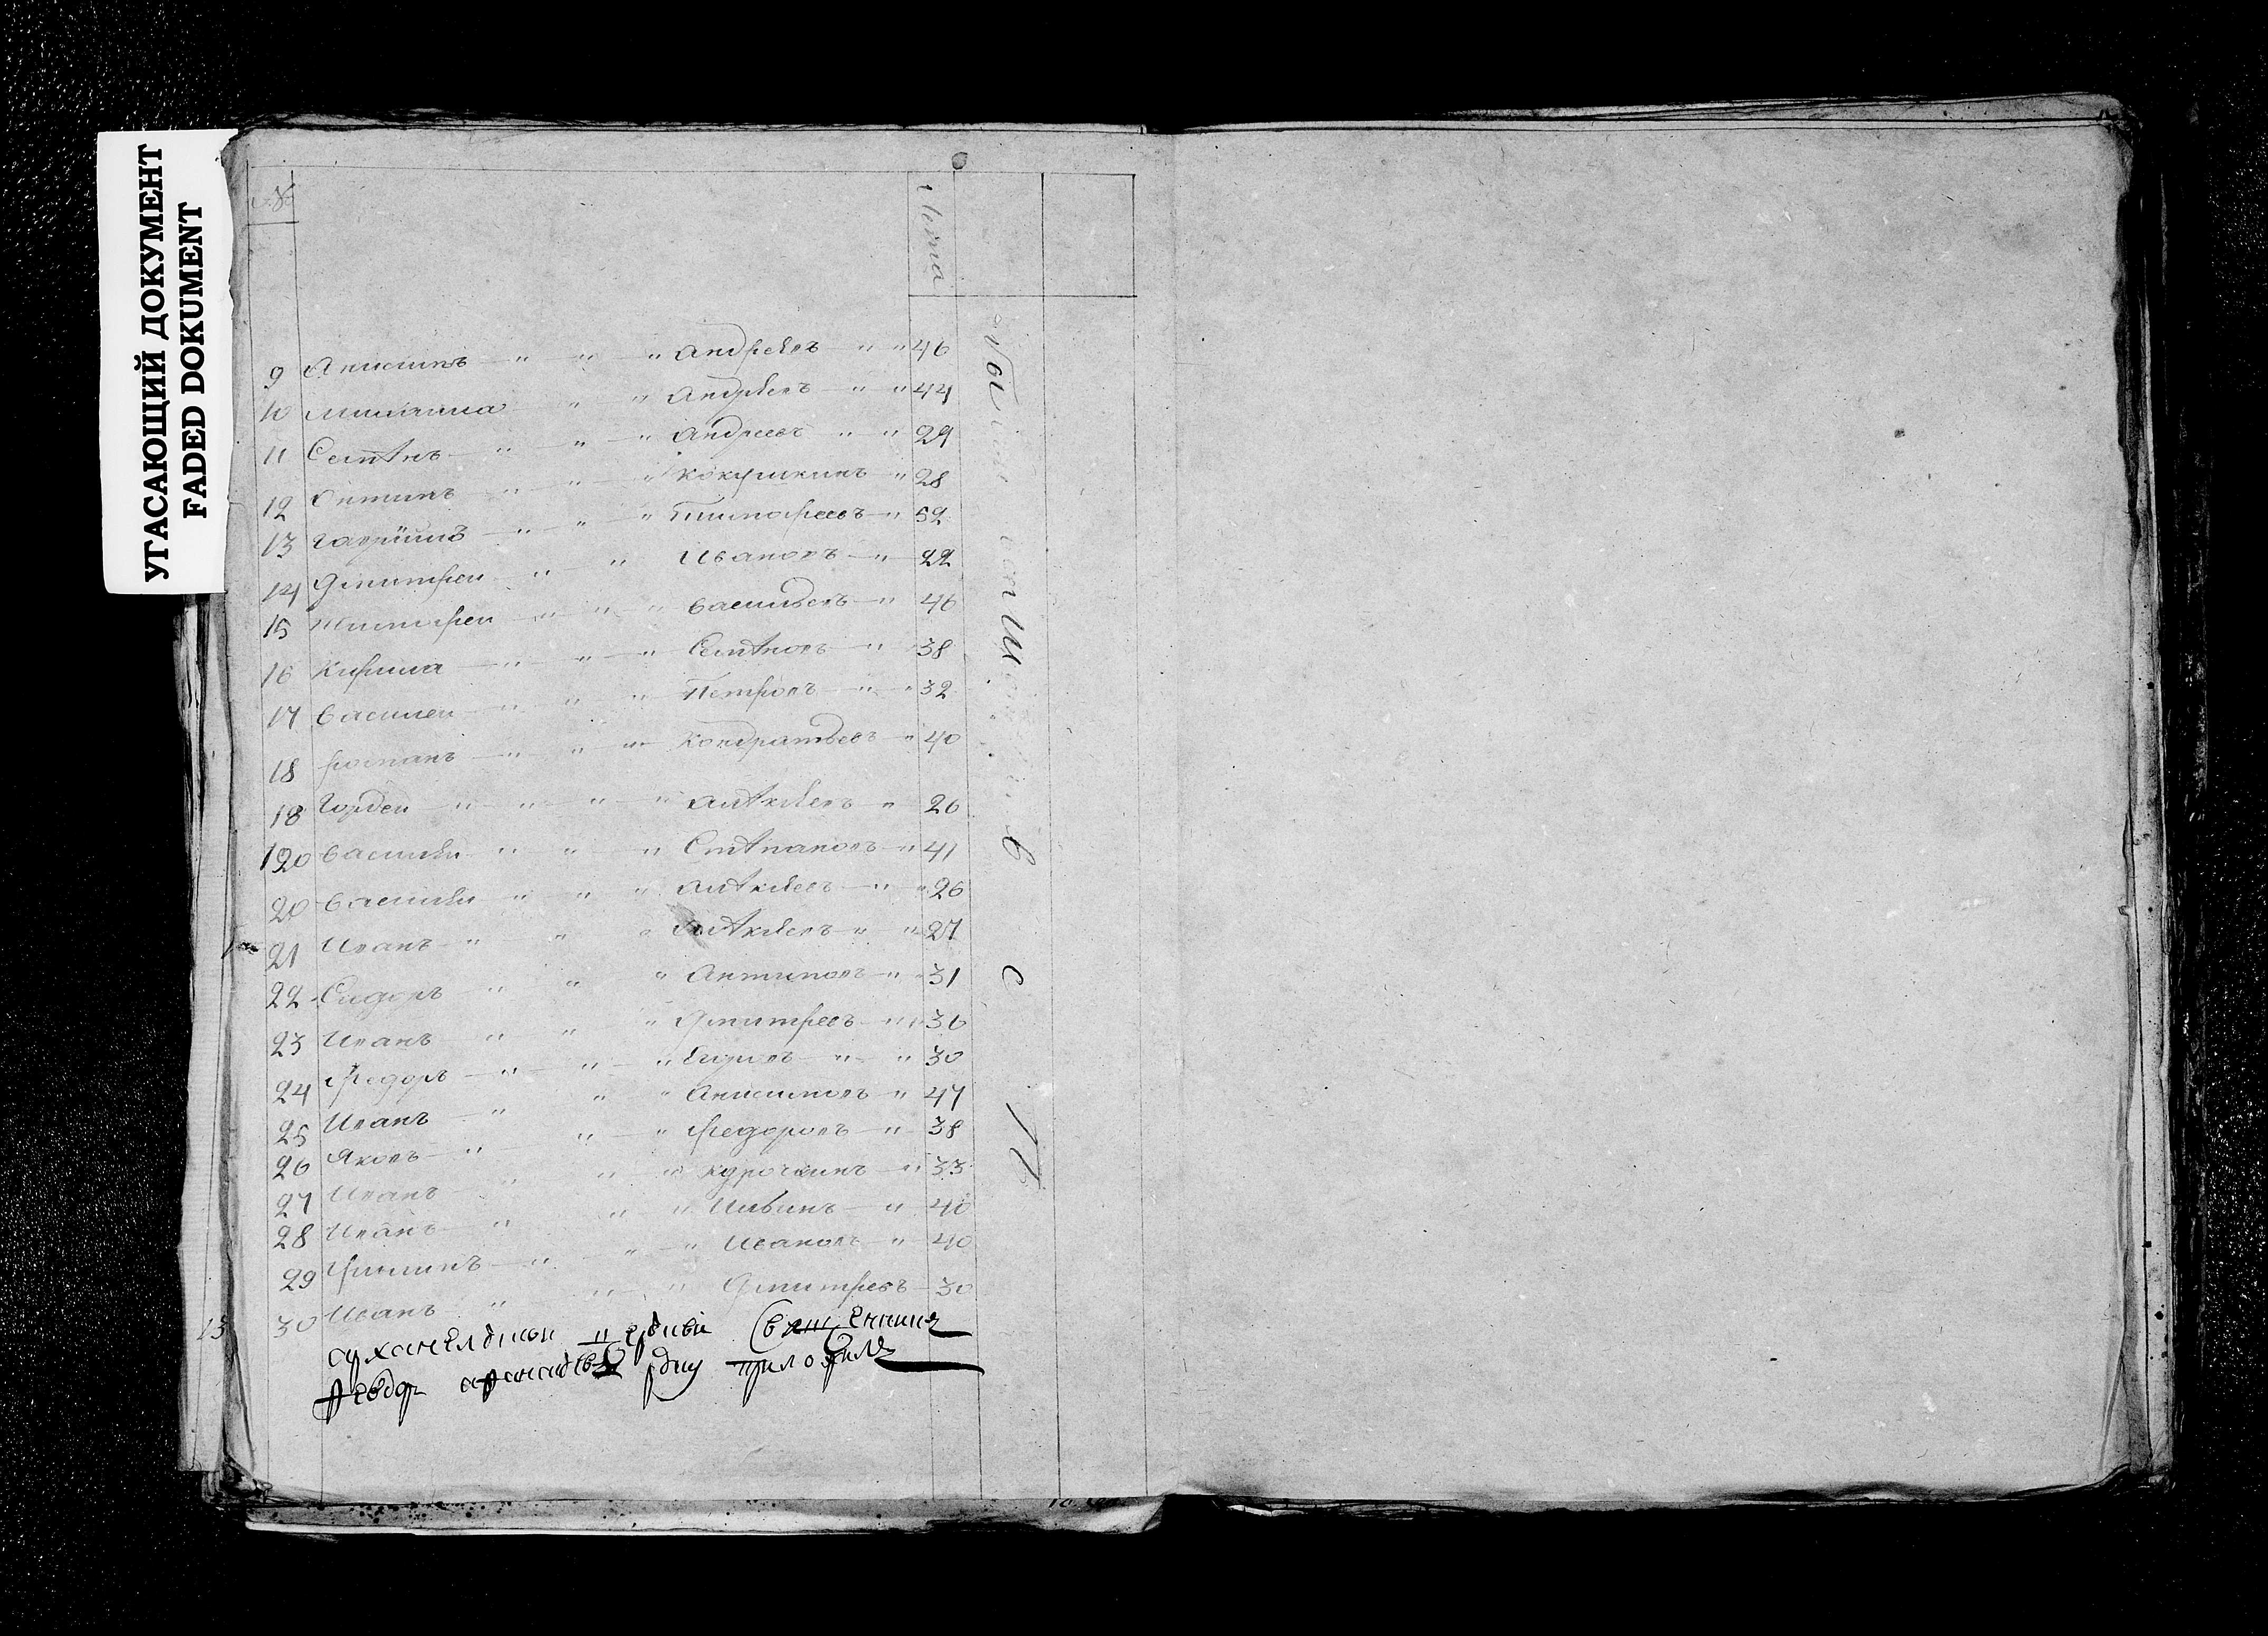 УГАСАЮЩИЙ ДОКУМЕНТ
FADED DOKUMENT
№ Лета
9 Анисимъ " " " Андреевъ " " 46
10 Микита " " Андреевъ " " 44
11 Семѣнъ " " " Андреевъ " " 29
12 Антипъ " " " Кокушкинъ " 28
13 Гавриилъ " " " Тимофеевъ " 52
14 Дмитрей " " Ивановъ " 22
15 Тимофей " " " Васильевъ " 46
16 Кирила " " " Семѣновъ " 38
17 Василей " " " Петровъ " " 32
18 Романъ " " " Кондратьевъ " 40
18 Гордей " " " " Алѣксѣевъ " 26
120 Василей " " " Стѣпановъ " 41
20 Василей " " " Алѣксѣевъ " " 26
21 Иванъ " " " Алѣксѣевъ " " 27
22 Сидоръ " " " Антиповъ " " 31
23 Иванъ " " " Дмитреевъ " " 36
24 Федоръ " " " Егоровъ " " 30
25 Иванъ " " " Анисимовъ " 47
26 Яковъ " " " Федоровъ " 38
27 Иванъ " " " Курочкинъ " 33
28 Иванъ " " " Ильинъ " 40
29 Филипъ " " " Ивановъ " 40
30 Иванъ " " " Дмитревъ 30
Священникъ
руку приложилъ